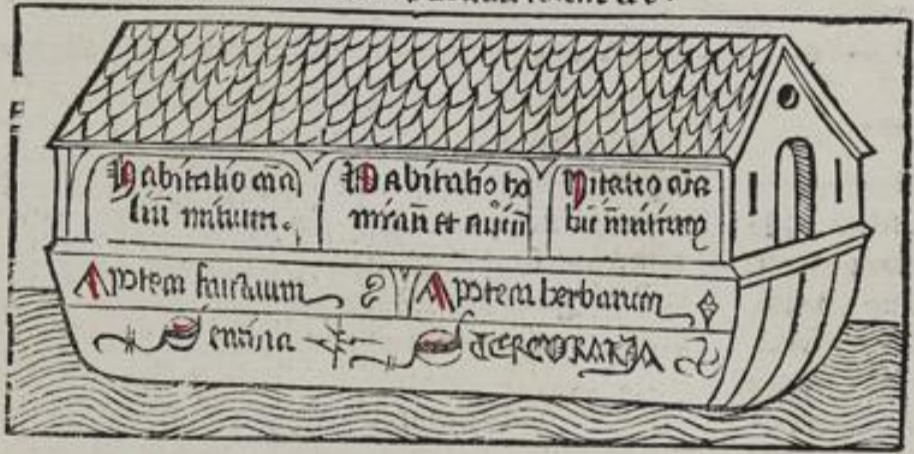 Habitatio aīa
liū mitium.
Habitatio ho
minū et auiū
bitatio aīa
liū īmitium
Apoteca fructuum
Apoteca herbarum
Sentina
STERCORARIA